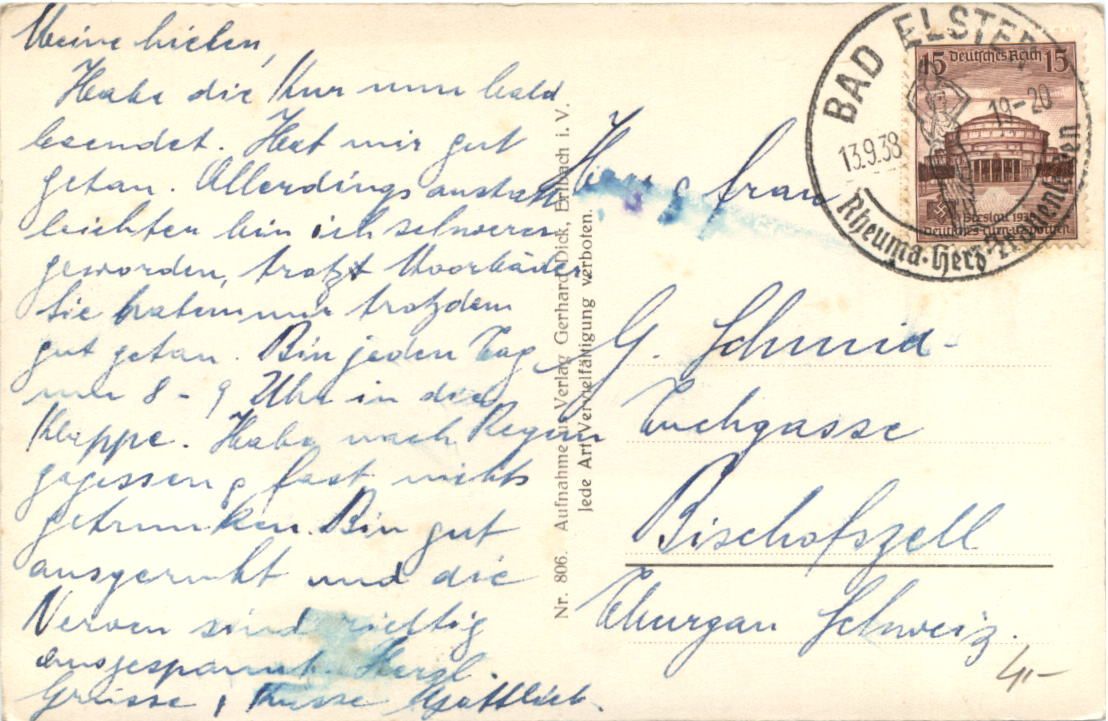 Meine Lieben,
Habe die Kur nun bald
beendet. Hat mir gut
getan. Allerdings anstatt
leichter bin ich schwerer
geworden, trotz Moorbäder
Sie haben mir trotzdem
gut getan. Bin jeden Tag
um 8 - 9 Uhr in die
Klappe. Habe nach Regim
gegessen & fast nichts
getrunken. Bin gut
ausgeruht und die
Nerven sind richtig
ausgespannt. Herzl.
Grüsse & Küsse Gottlieb.
Nr. 806. Aufnahme u. Verlag Gerhard Dick, Erlbach i. V.
Jede Art Vervielfältigung verboten.
BAD ELSTER
13.9.38 19-20
Rheuma-Herz-Frauenleiden
15 Deutsches Reich 15
Breslau 1938
Deutsches Turn- u. Sportfest
Herr & Frau
G. Schmid-
Tuchgasse
Bischofszell
Thurgau Schweiz.
4,-